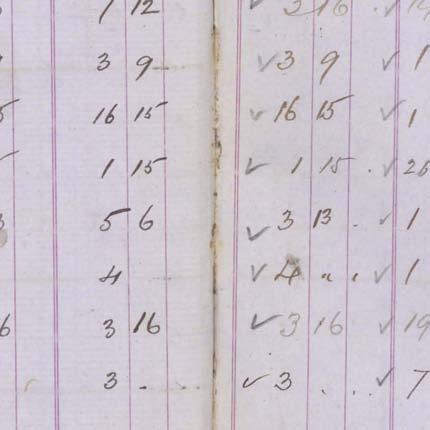 1 12 ✓ 2 16 ✓
3 9 ✓ 3 9 ✓ 1
16 15 ✓ 16 15 ✓ 1
1 15 ✓ 1 15 . ✓ 26
5 6 ✓ 3 13 . ✓ 1
4 ✓ 4 " . ✓ 1
6 3 16 ✓ 3 16 ✓ 19
3 . ✓ 3 . . . ✓ 7